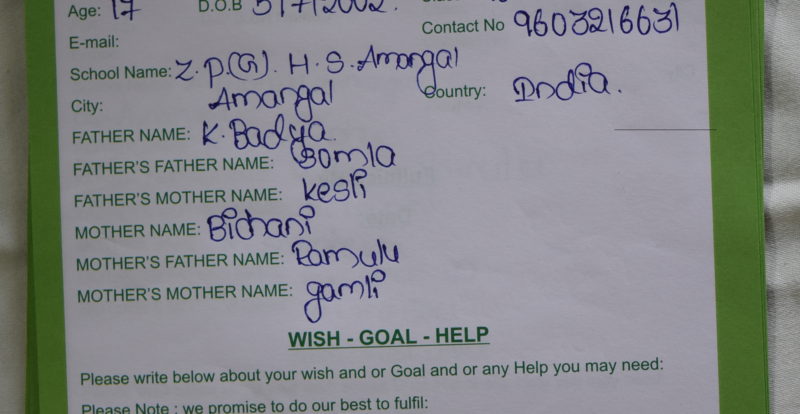 Age: 17 D.O.B 5/7/2002.
Contact No 9603216631
E-mail:
School Name: Z.P.(G). H.S. Amangal
City: Amangal Country: India.
FATHER NAME: K. Badya
FATHER'S FATHER NAME: Bomla
FATHER'S MOTHER NAME: Kesli
MOTHER NAME: Bichani
MOTHER'S FATHER NAME: Ramulu
MOTHER'S MOTHER NAME: gamli
WISH - GOAL - HELP
Please write below about your wish and or Goal and or any Help you may need:
Please Note : we promise to do our best to fulfil: